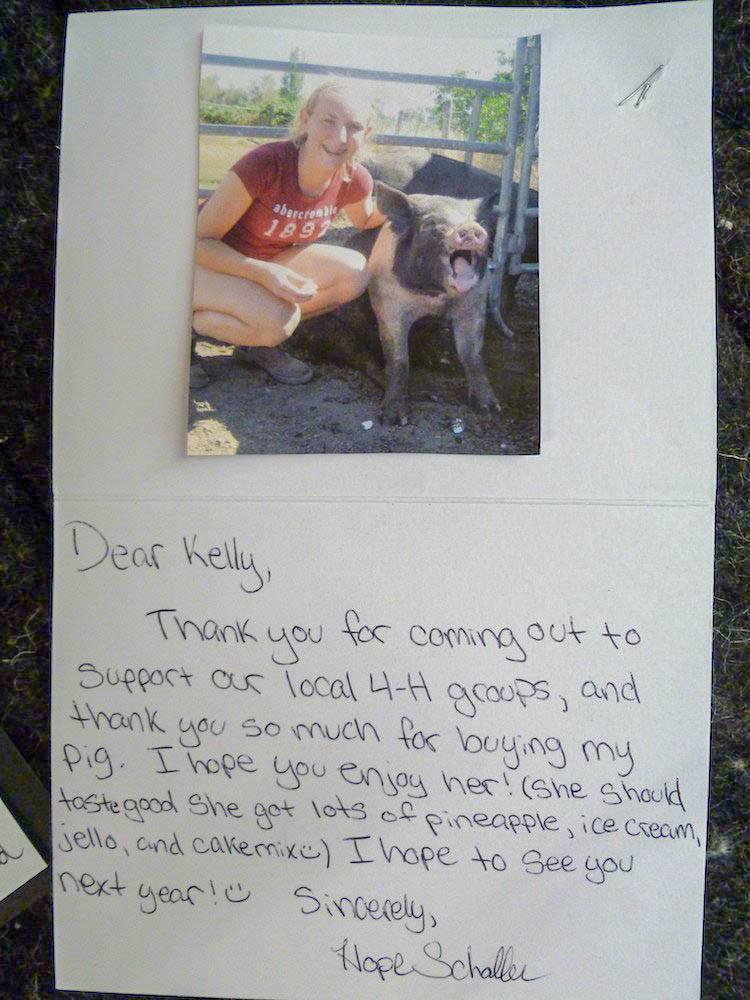 abercrombie
1892
Dear Kelly,
Thank you for coming out to
support our local 4-H groups, and
thank you so much for buying my
pig. I hope you enjoy her! (She should
taste good she got lots of pineapple, ice cream,
jello, and cakemix☺) I hope to see you
next year!☺ Sincerely,
Hope Schaller